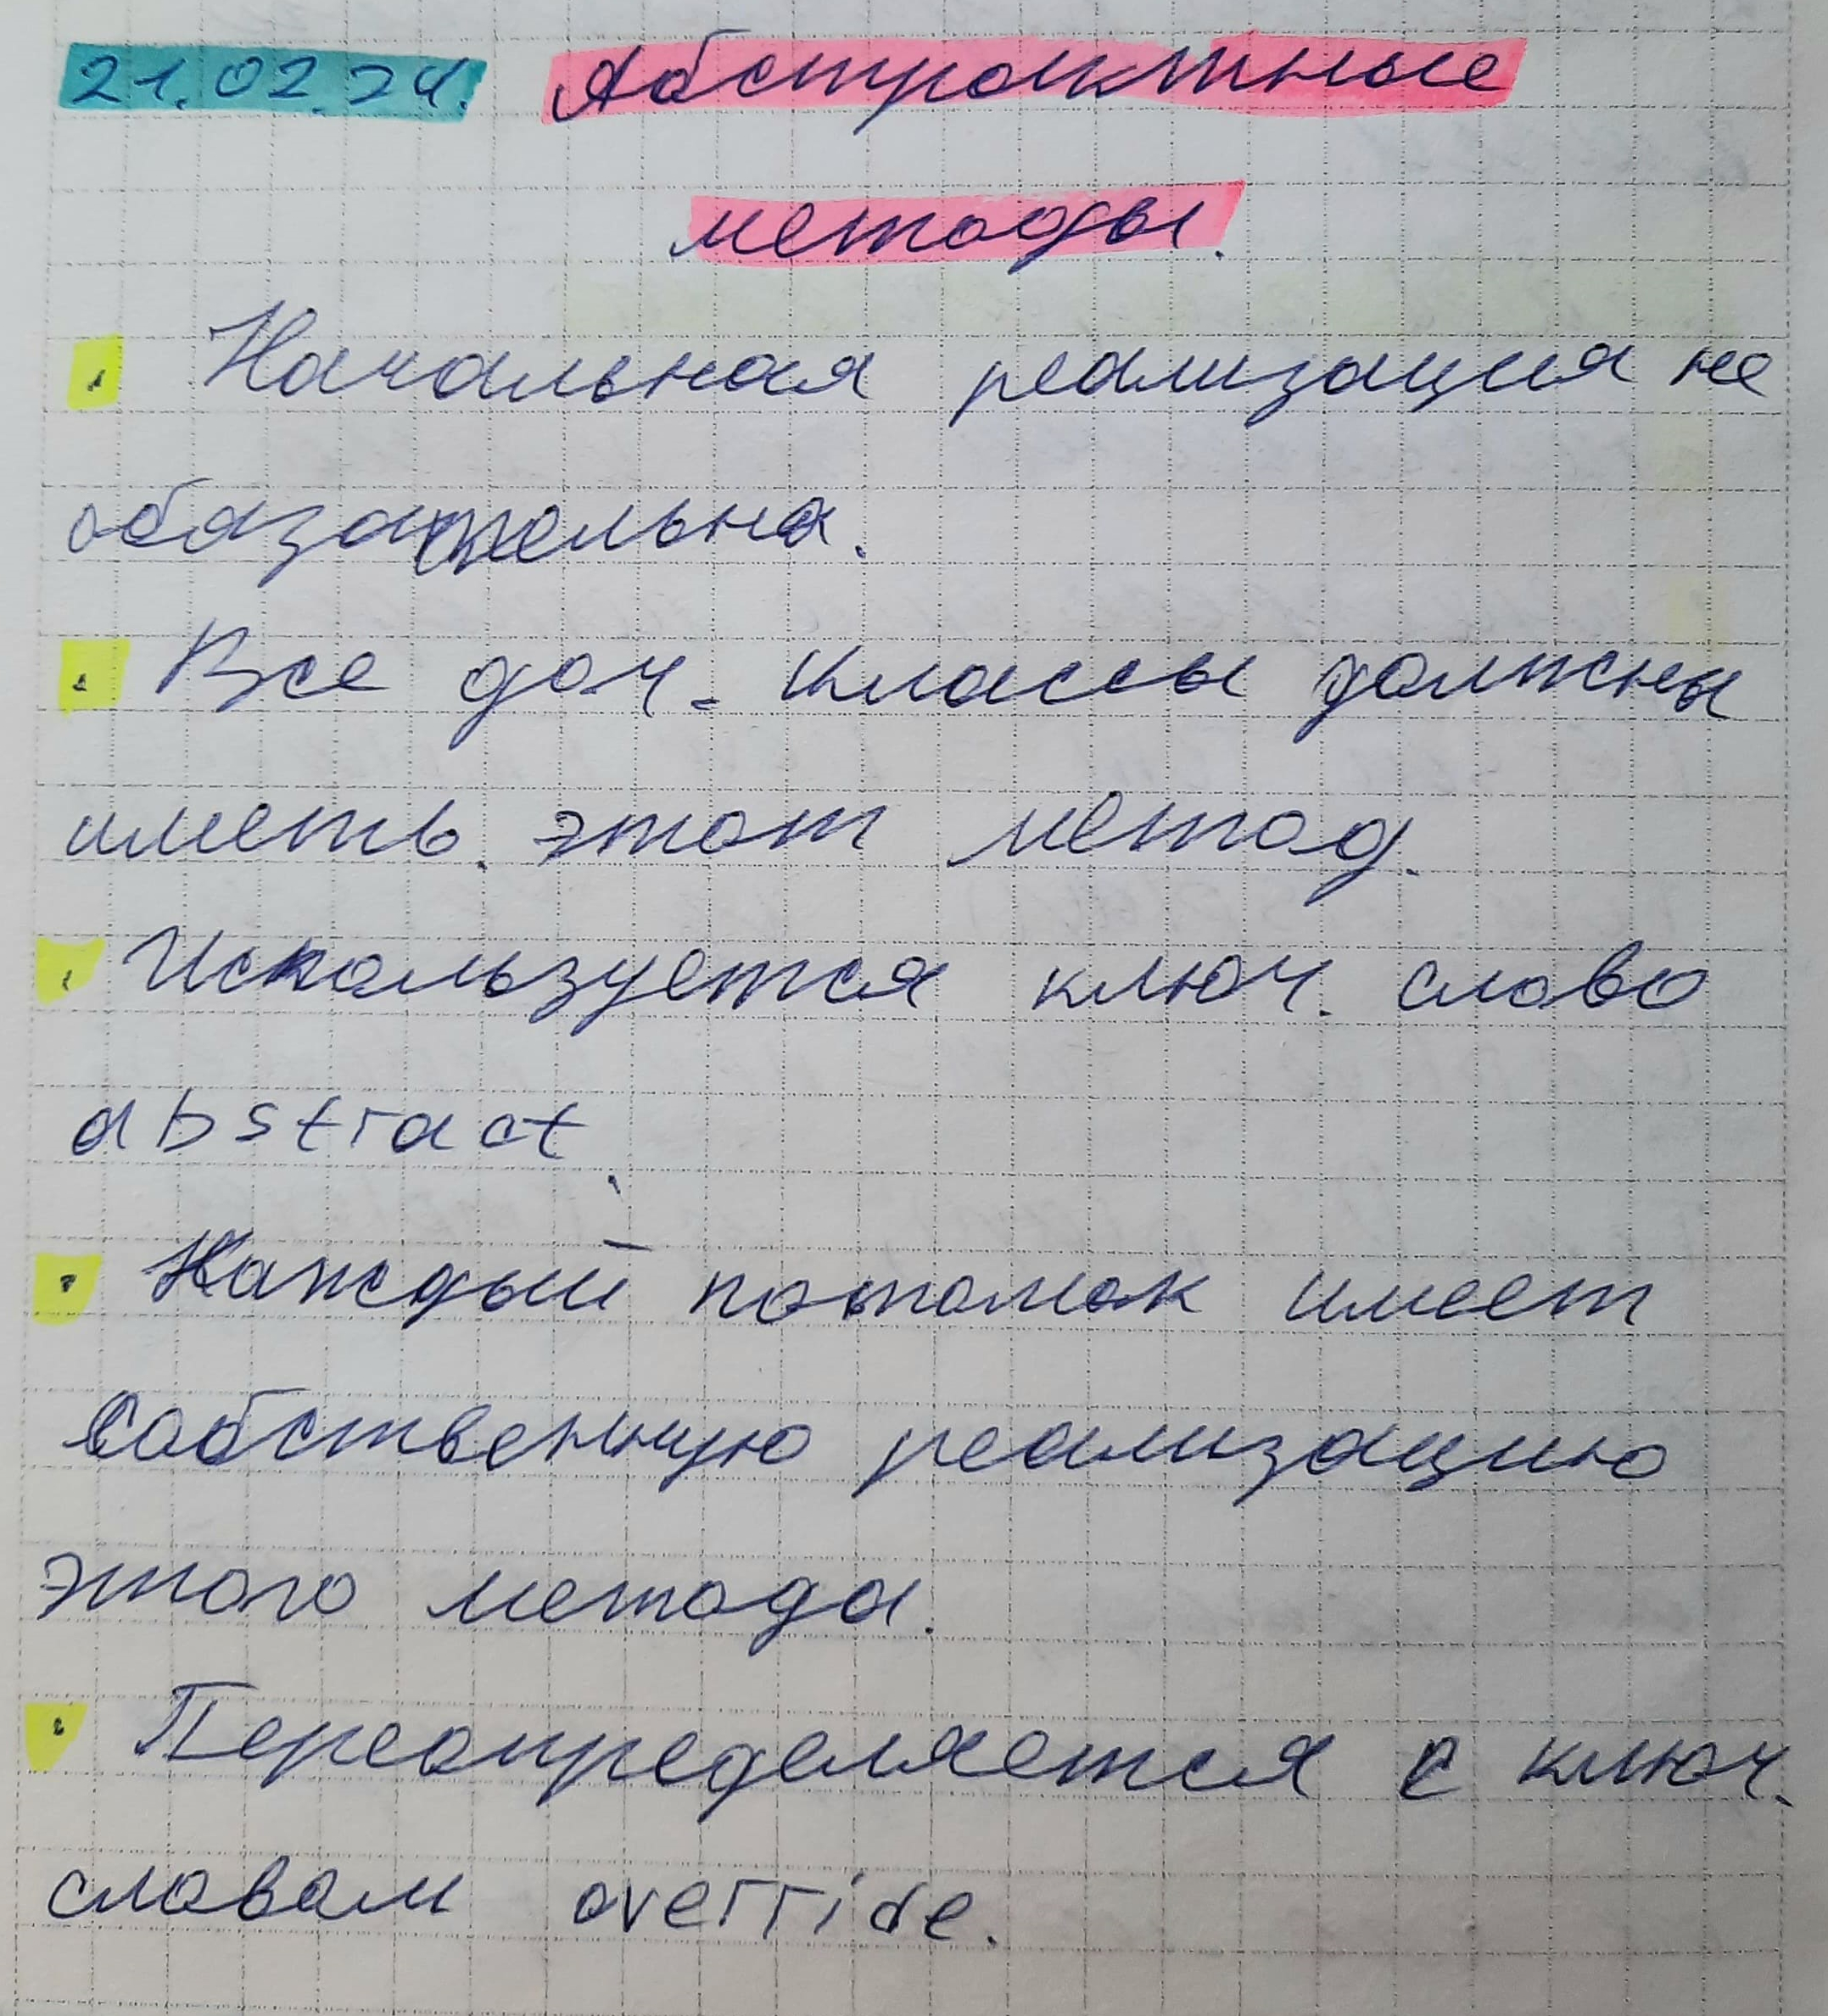 21.02.24. Абстрактные
методы.
Начальная реализация не
обязательна.
Все доч. классы должны
иметь этот метод.
Используется ключ. слово
abstract.
Каждый потомок имеет
собственную реализацию
этого метода.
Переопределяется с ключ.
словом override.